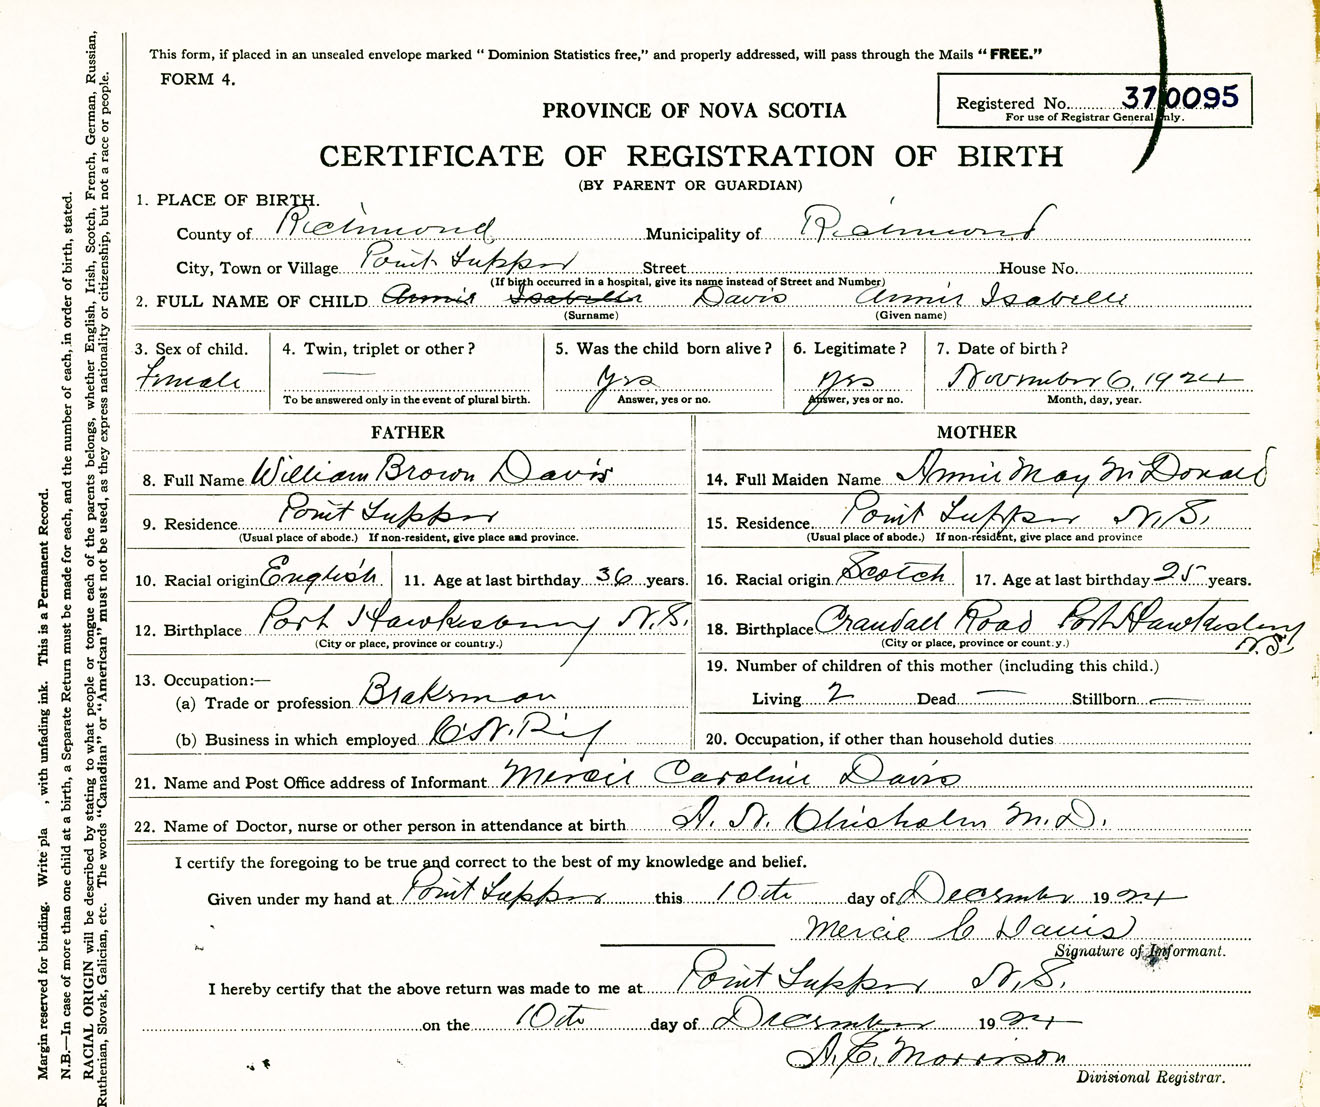 This form, if placed in an unsealed envelope marked “ Dominion Statistics free,” and properly addressed, will pass through the Mails “FREE.”
FORM 4.
Registered No. 370095
For use of Registrar General only.
PROVINCE OF NOVA SCOTIA
CERTIFICATE OF REGISTRATION OF BIRTH
(BY PARENT OR GUARDIAN)
1. PLACE OF BIRTH.
County of Richmond Municipality of Richmond
City, Town or Village Point Tupper Street House No.
(If birth occurred in a hospital, give its name instead of Street and Number)
2. FULL NAME OF CHILD Annie Isabelle Davis Annie Isabelle
(Surname) (Given name)
3. Sex of child. 4. Twin, triplet or other ? 5. Was the child born alive ? 6. Legitimate ? 7. Date of birth ?
Female — Yes Yes November 6, 1924
To be answered only in the event of plural birth. Answer, yes or no. Answer, yes or no. Month, day, year.
FATHER MOTHER
8. Full Name William Brown Davis 14. Full Maiden Name Annie May McDonald
9. Residence Point Tupper 15. Residence. Point Tupper N.S.
(Usual place of abode.) If non-resident, give place and province. (Usual place of abode.) If non-resident, give place and province
10. Racial origin English 11. Age at last birthday 36 years. 16. Racial origin Scotch 17. Age at last birthday 25 years.
12. Birthplace Port Hawkesbury N.S. 18. Birthplace Crandall Road Port Hawkesbury N.S.
(City or place, province or country.) (City or place, province or country.)
19. Number of children of this mother (including this child.)
13. Occupation:—
(a) Trade or profession Brakeman Living 2 Dead — Stillborn —
(b) Business in which employed C.N.Ry 20. Occupation, if other than household duties
21. Name and Post Office address of Informant Mercie Caroline Davis
22. Name of Doctor, nurse or other person in attendance at birth A. N. Chisholm M.D.
I certify the foregoing to be true and correct to the best of my knowledge and belief.
Given under my hand at Point Tupper this 10th day of December 1924
Mercie C Davis
Signature of Informant.
I hereby certify that the above return was made to me at Point Tupper N.S.
on the 10th day of December 1924
A. E. Morrison
Divisional Registrar.
Margin reserved for binding. Write pla , with unfading ink. This is a Permanent Record.
N.B.—In case of more than one child at a birth, a Separate Return must be made for each, and the number of each, in order of birth, stated.
RACIAL ORIGIN will be described by stating to what people or tongue each of the parents belongs, whether English, Irish, Scotch, French, German, Russian,
Ruthenian, Slovak, Galician, etc. The words “Canadian” or “American” must not be used, as they express nationality or citizenship, but not a race or people.